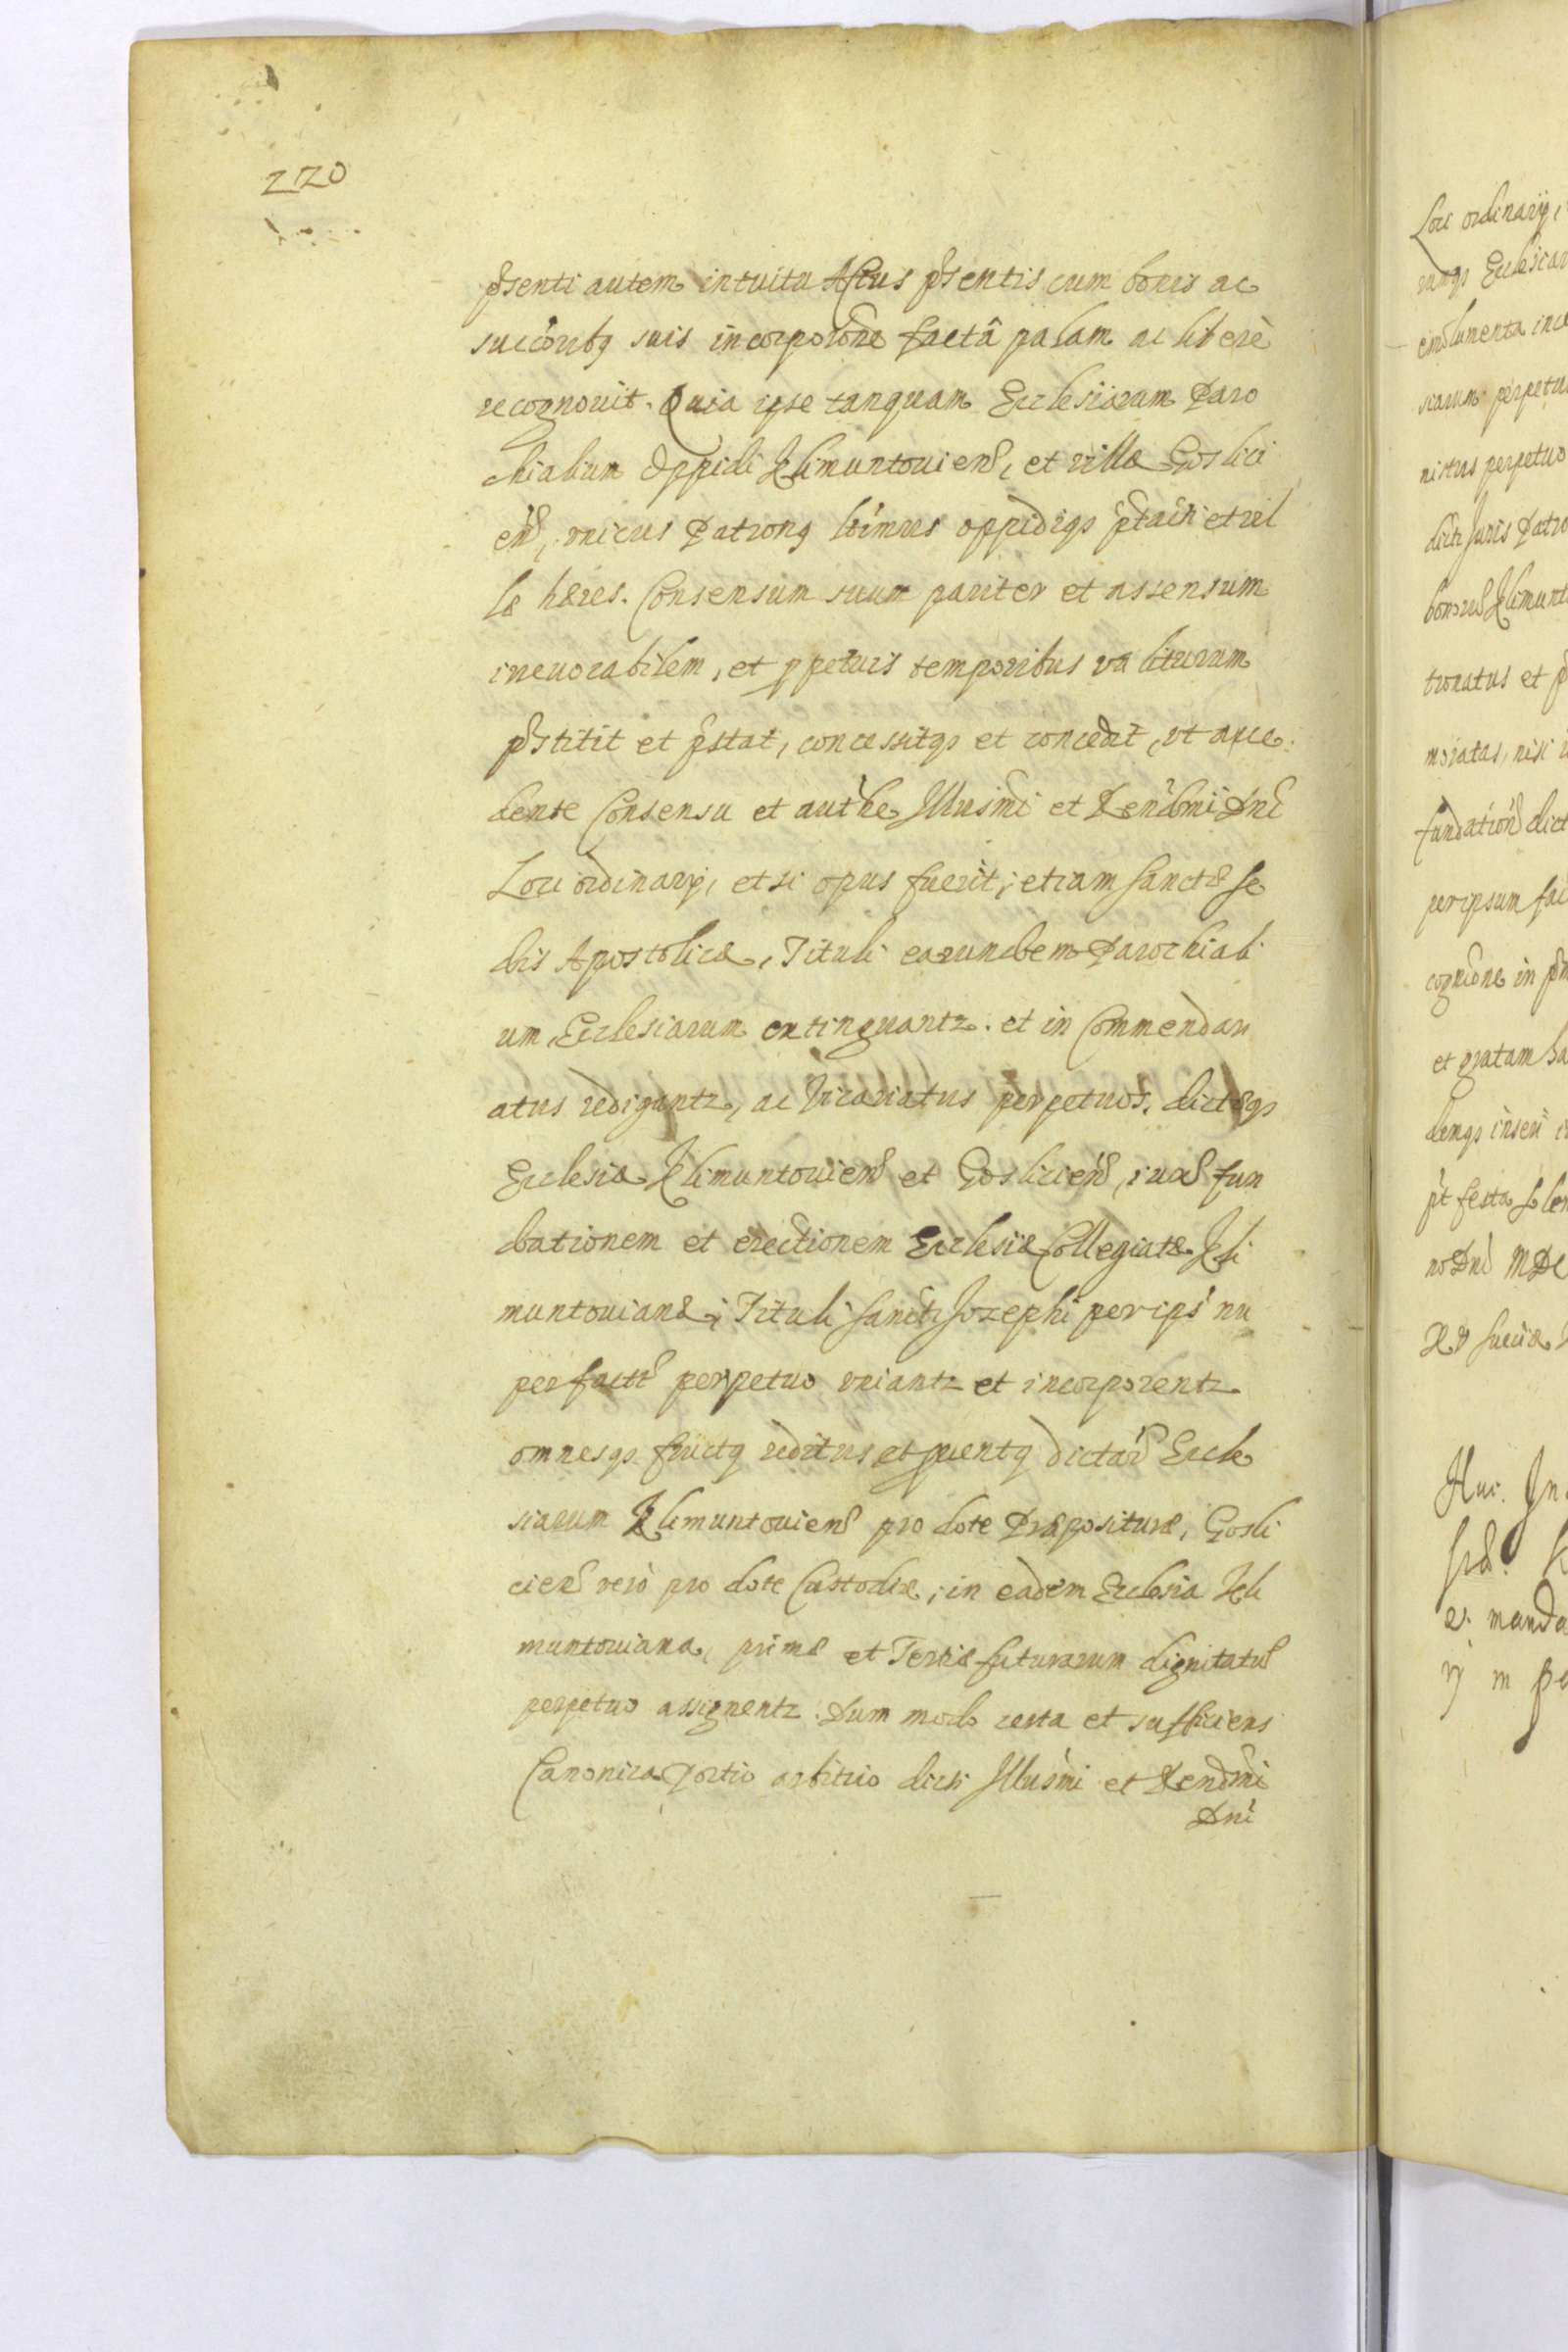 220
p̃senti autem intuitu Actus p̃sentis cum bonis ac
succõribꝗ suis incorporõne factâ palam ac liberè
recognovit. Quia ipse tanquam Ecclesiarum Paro
chialium Oppidi Klimuntouien̑, et villæ Goslici
en̑, vnicus Patronꝗ ltĩmus oppidiqꝫ p̃tacti et vil
læ hæres. Consensum suum pariter et assensum
irreuocabilem, et ꝑpetuis temporibus valiturum
p̃stitit et p̃stat, concessitqꝫ et concedit, vt acce
dente Consensu et autħe Illusm̃i et Rendm̃i Dnĩ
Loci ordinarij, et si opus fuerit; etiam Sanctæ Se
dis Apostolicæ, Tituli earundem Parochiali
um Ecclesiarum extinguantz. et in Commendari
atus redigantz, ac Vicariatus perpetuos. dictæqꝫ
Ecclesiæ Klimuntouien̑ et Goslicien̑, iuxᵗ fun
dationem et erectionem Ecclesiæ Collegiatæ Kli
muntouianæ, Tituli Sancti Jozephi per ips̃ nu
per factᵗ perpetuo vniantz et incorporentz
omnesqꝫ fructꝗ reditus et ꝓuentꝗ dictar̃ Eccle
siarum Klimuntouien̑ pro dote Præposituræ, Gosli
cien̑ verò pro dote Custodiæ, in eadem Ecclesia Kli
muntouiana, primæ et Tertiæ futurarum dignitatũ
perpetuo assignentz. Dum modo certa et sufficiens
Canonica Portio arbitrio dicti Illusm̃i et Rendm̃i
Dnĩ
Loci ordinarij,
rumqꝫ Ecclesiar
siarum perpetu
nistris perpetuo
dicti Juris Patro
bonorũ Klimunt
tronatus et p
moratas, nisi
fundatiõn̑ dict
per ipsum fac
et gratam ha
p̃t festa
no Dnĩ MDC
Huc.
manda